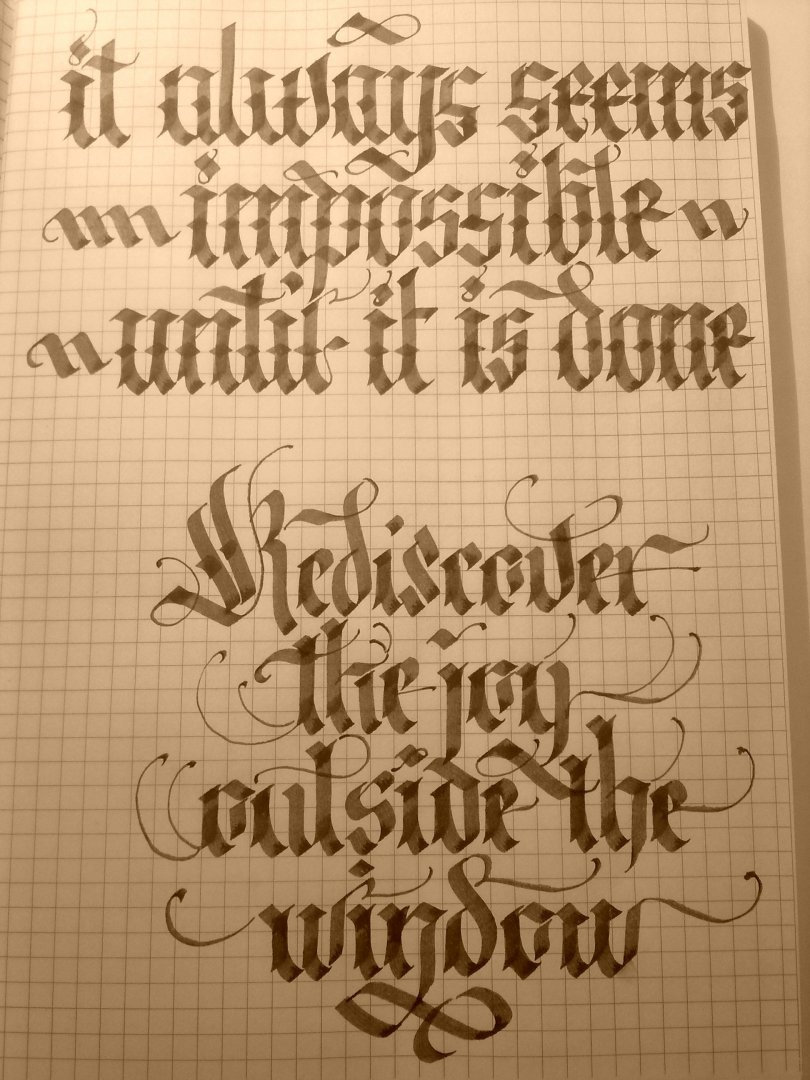 it always seems
impossible
until it is done
Rediscover
the joy
outside the
window